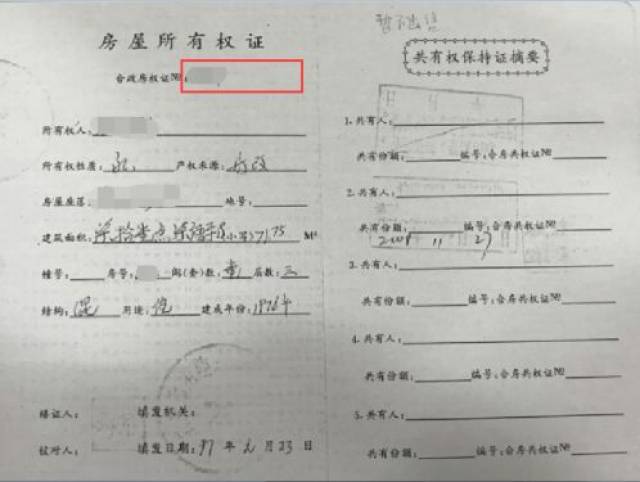 房屋所有权证
合政房权证№:
所有权人:
所有权性质: 产权来源: 房改
房屋座落: 地号:
建筑面积: 柒拾壹点柒 71.75 M²
幢号: 房号: 间(套)数: 壹 层数: 三
结构: 混 用途: 住 建成年份: 1976年
缮证人: 填发机关:
校对人: 填发日期: 97年 月23日
暂不出售
共有权保持证摘要
1.共有人:
共有份额: 编号:合房共权证№
2.共有人:
共有份额: 编号:合房共权证№
11 27
3.共有人:
共有份额: 编号:合房共权证№
4.共有人:
共有份额: 编号:合房共权证№
5.共有人:
共有份额: 编号:合房共权证№